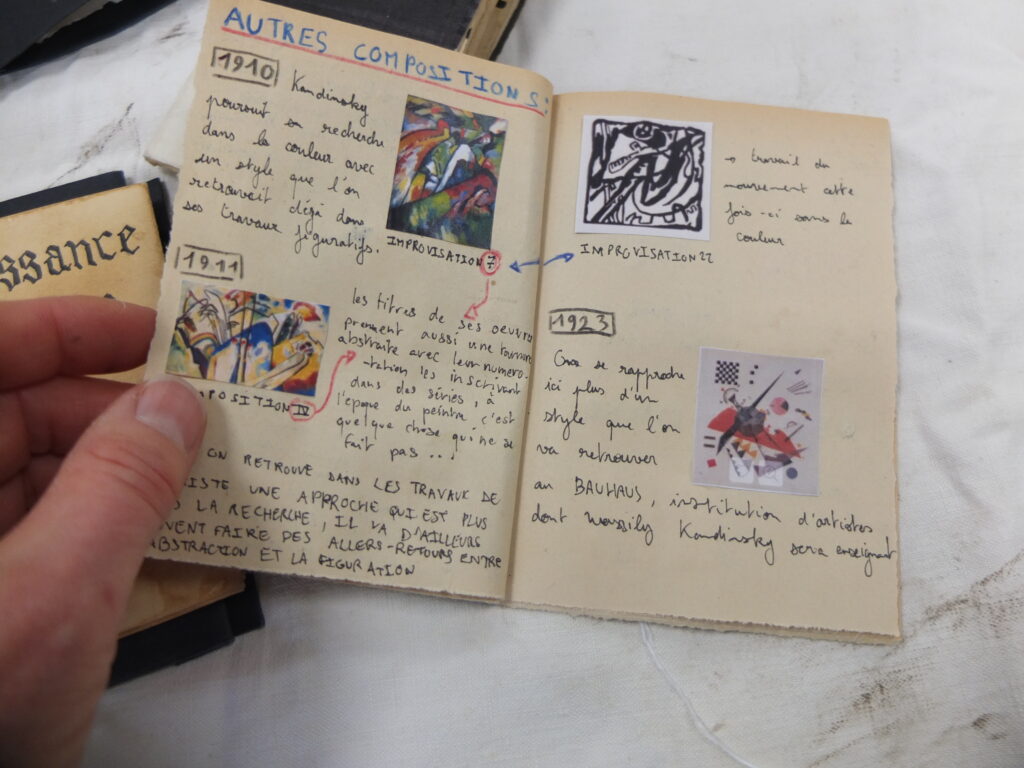 AUTRES COMPOSITIONS:
1910
Kandinsky
poursuit sa recherche
dans la couleur avec
un style que l'on
retrouvait déjà dans
ses travaux figuratifs.
IMPROVISATION 7
1911
les titres de ses oeuvres
prennent aussi une tournure
abstraite avec leur numéro-
tation les inscrivant
dans des séries, à
l'époque du peintre c'est
quelque chose qui ne se
fait pas ...
MPOSITION IV
ON RETROUVE DANS LES TRAVAUX DE
ISTE UNE APPROCHE QUI EST PLUS
LA RECHERCHE, IL VA D'AILLEURS
VENT FAIRE DES ALLERS-RETOURS ENTRE
ABSTRACTION ET LA FIGURATION
→ travail du
mouvement cette
fois-ci sans la
couleur
IMPROVISATION 22
1923
se rapproche
ici plus d'un
style que l'on
va retrouver
au BAUHAUS, institution d'artistes
dont Wassily Kandinsky sera enseignant
ssance